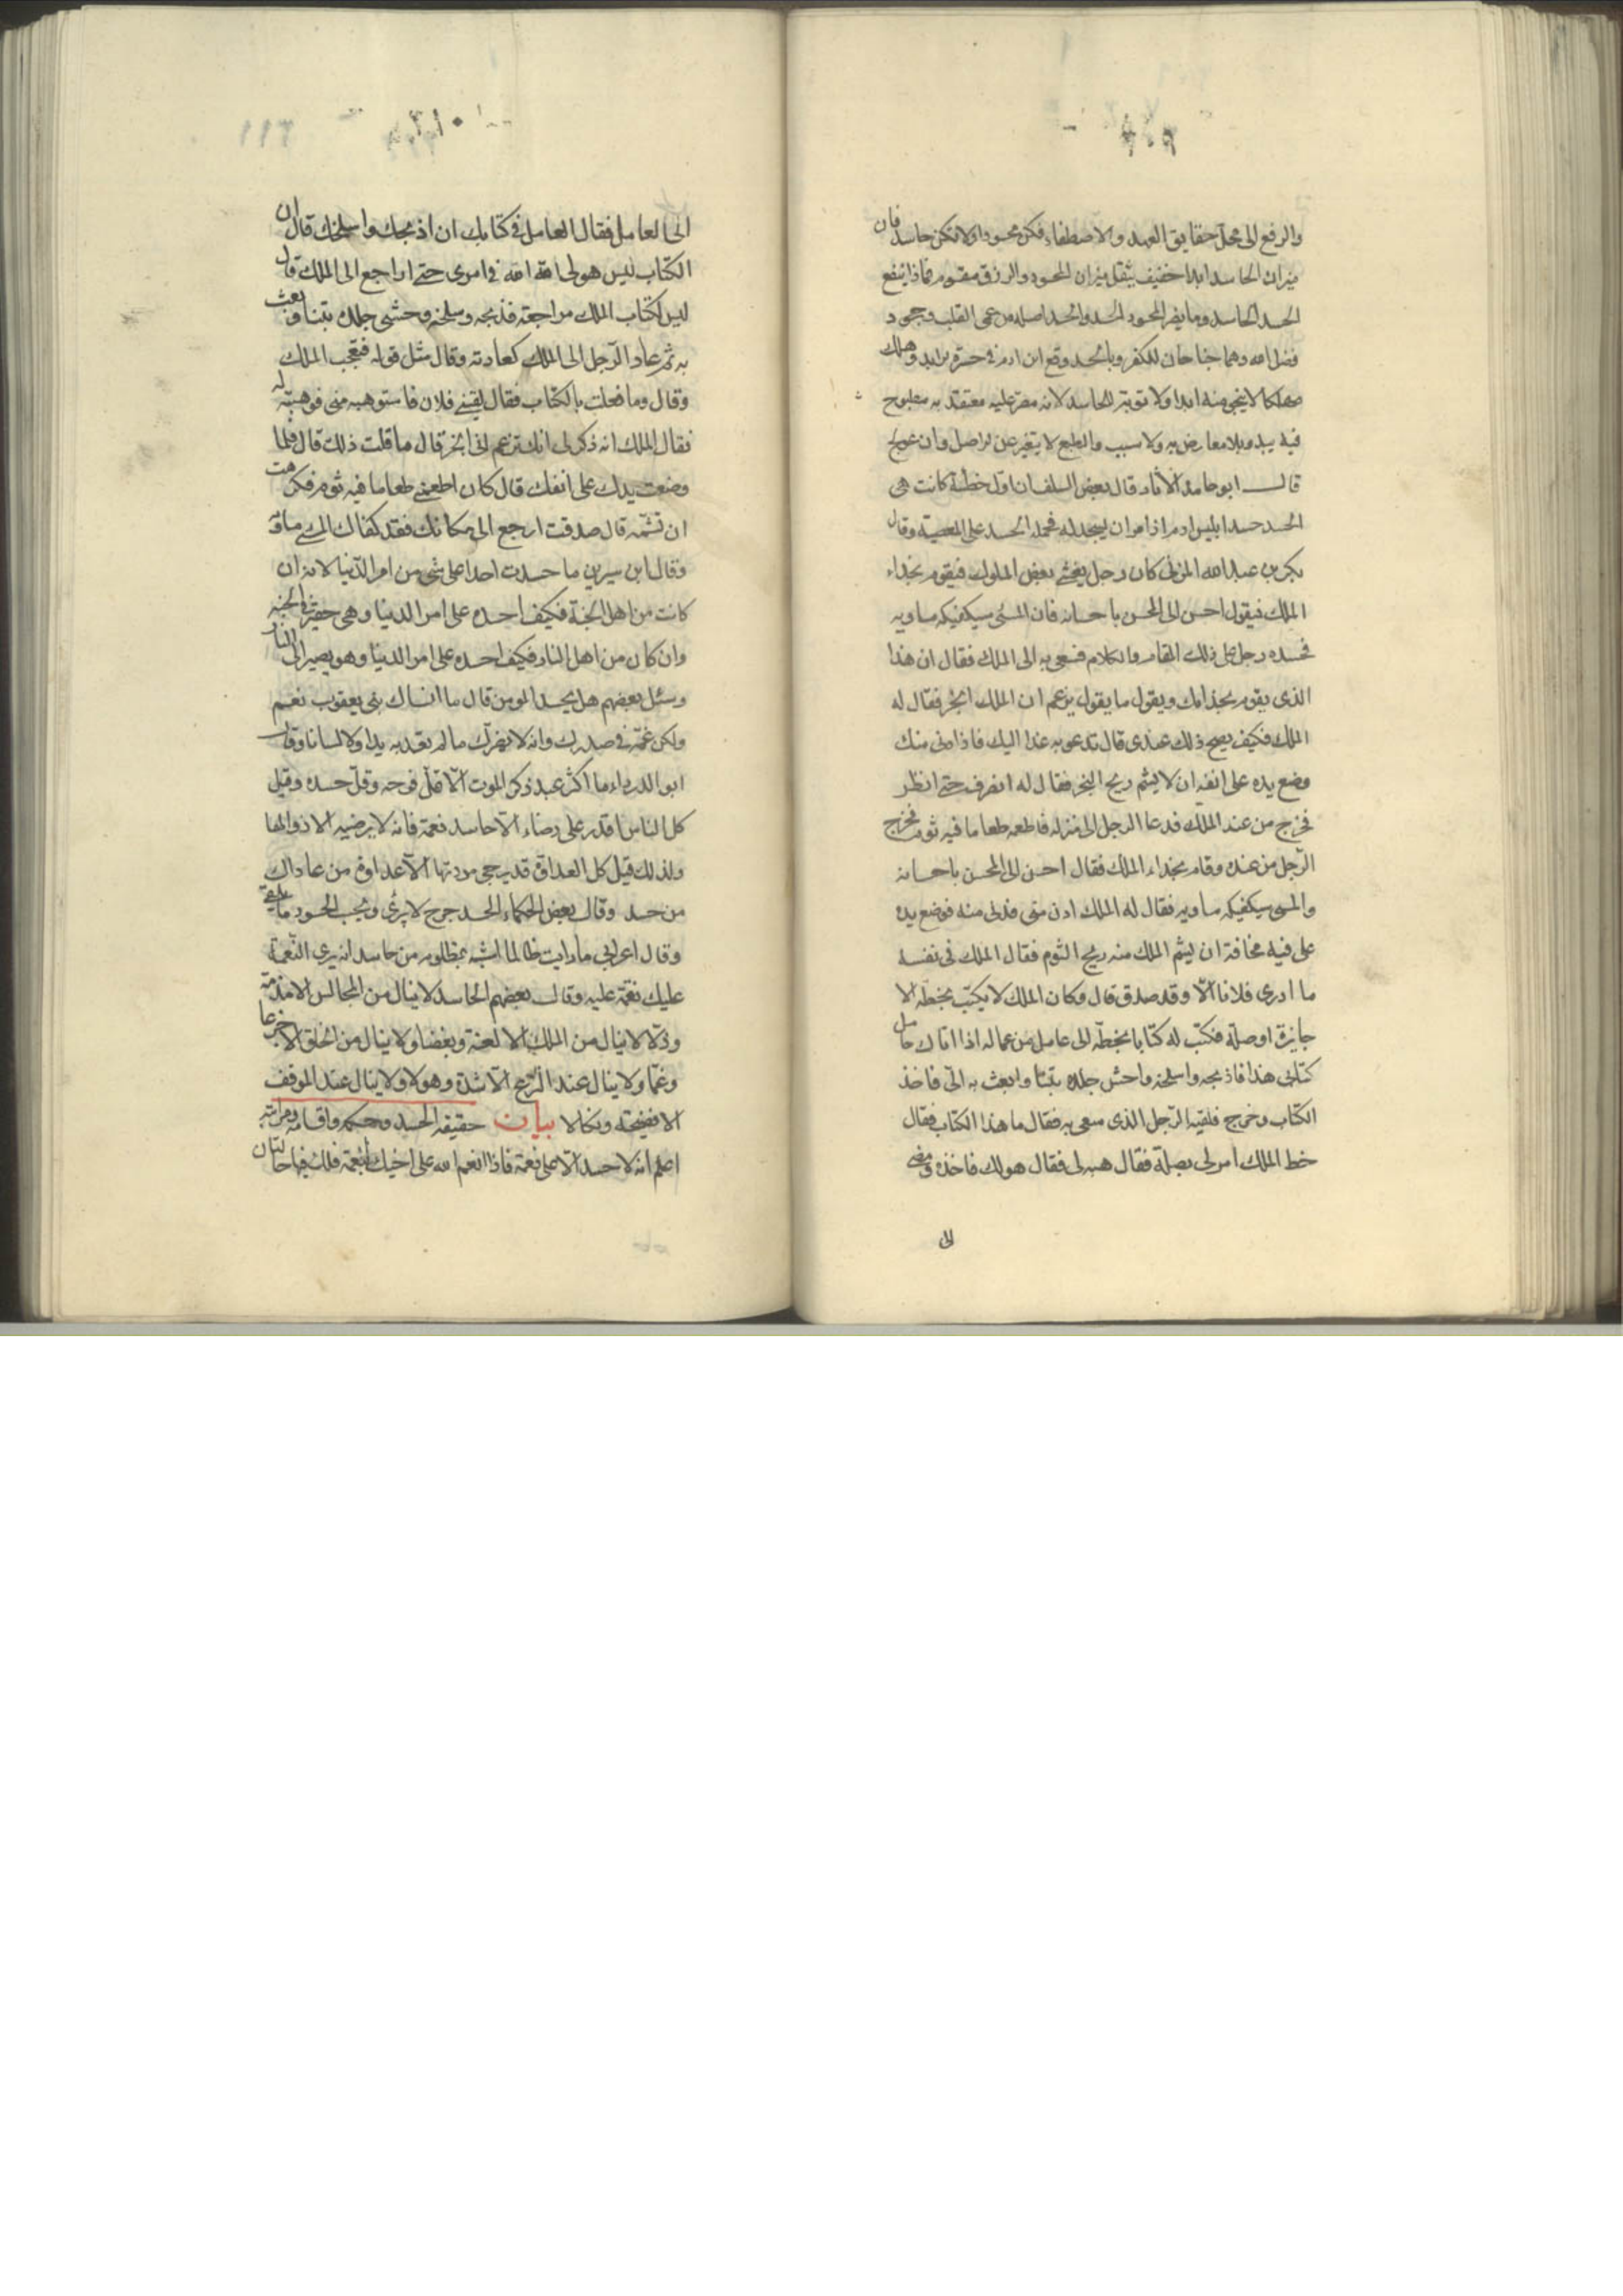 والرفع الى محل حقايق العهد والاصطفاء فكن محسودا ولا تكن حاسدا فان
ميزان الحاسد ابدا خفيف بثقل ميزان المحسود والرزق مقسوم فماذا ينفع
الحسد الحاسد وما يضر المحسود الحسد والحسد اصله من عمى القلب وجحود
فضل الله وهما جناحان للكفر وبالحسد وقع ابن ادم في حسرة الابد وهلك
مهلكا لا ينجو منه ابدا ولا توبة للحاسد لانه مصر عليه معتقد به مطبوع
فيه يبدو بلا معارض به ولا سبب والطبع لا يتغير عن الاصل وان عولج
قال ابو حامد الاثار قال بعض السلف ان اول خطئة كانت هي
الحسد حسد ابليس ادم اذا مر ان يسجد له فحمله الحسد على المعصية وقال
بكر بن عبد الله المزنى كان رجل يغشى بعض الملوك فيقوم بحذاء
الملك فيقول احسن الى المحسن باحسانه فان المسئ سيكفيكه مساويه
فحسده رجل على ذلك المقام والكلام فسعى به الى الملك فقال ان هذا
الذى يقوم بحذائك ويقول ما يقول يزعم ان الملك ابخر فقال له
الملك فكيف يصح ذلك عندى قال تدعو به غدا اليك فاذا دنى منك
وضع يده على انفه ان لا يشم ريح البخر فقال له انصرف حتى انظر
فخرج من عند الملك فدعا الرجل الى منزله فاطعمه طعاما فيه ثوم فخرج
الرجل من عنده وقام بحذاء الملك فقال احسن الى المحسن باحسانه
والمسى سيكفيكه مساويه فقال له الملك ادن منى فدنى منه فوضع يده
على فيه مخافة ان يشم الملك منه ريح الثوم فقال الملك فى نفسه
ما ادرى فلانا الا وقد صدق قال وكان الملك لا يكتب بخطه الا
جايزة او صلة فكتب له كتابا بخطه الى عامل من عماله اذا اتاك حامل
كتابى هذا فاذبحه واسلخه واحش جلده تبنا وابعث به الى فاخذ
الكتاب وخرج فلقيه الرجل الذى سعى به فقال ما هذا الكتاب فقال
خط الملك امر لى بصلة فقال هبه لى فقال هو لك فاخذه ومضى
الى
الى العامل فقال العامل فى كتابك ان اذبحك واسلخك قال ان
الكتاب ليس هو لى الله الله فى امرى حتى اراجع الى الملك قال
ليس لكتاب الملك مراجعة فذبحه وسلخه وحشى جلده تبنا وبعث
به ثم عاد الرجل الى الملك كعادته وقال مثل قوله فتعجب الملك
وقال وما فعلت بالكتاب فقال لقينى فلان فاستوهبه منى فوهبته له
فقال الملك انه ذكر لى انك تزعم انى ابخر قال ما قلت ذلك قال فلما
وضعت يدك على انفك قال كان اطعمنى طعاما فيه ثوم فكرهت
ان تشمه قال صدقت ارجع الى مكانك فقد كفاك المسى مساويه
وقال ابن سيرين ما حسدت احدا على شى من امر الدنيا لانه ان
كانت من اهل الجنة فكيف احسده على امر الدنيا وهى حقيرة فى الجنه
وان كان من اهل النار فكيف احسده على امر الدنيا وهو يصير الى النار
وسئل بعضهم هل يحسد المومن قال ما انساك بنى يعقوب نعم
ولكن غمه فى صدرك وانه لا يضرك ما لم تعد به يدا ولا لسانا وقال
ابو الدرداء ما اكثر عبد ذكر الموت الا قل فرحه وقل حسده وقيل
كل الناس اقدر على رضاه الا حاسد نعمة فانه لا يرضيه الا زوالها
ولذلك قيل كل العداوة قد يرجى مودتها الا عداوة من عاداك
من حسد وقال بعض الحكماء الحسد جرح لا يبرئ وبحسب الحسود ما يلقى
وقال اعرابى ما رايت ظالما اشبه بمظلوم من حاسد انه يرى النعمة
عليك نقمة عليه وقال بعضهم الحاسد لا ينال من المجالس الا مذمة
وذلا لا ينال من الملك الا لعنة وبغضا ولا ينال من الخلق الا جزعا
وغما ولا ينال عند النزع الا شدة وهولا ولا ينال عند الموقف
الا فضيحة ونكالا بيان حقيقة الحسد وحكمه واقسامه ومراتبه
اعلم انه لا حسد الا على نعمة فاذا انعم الله على اخيك بنعمة فلك فيها حالتان